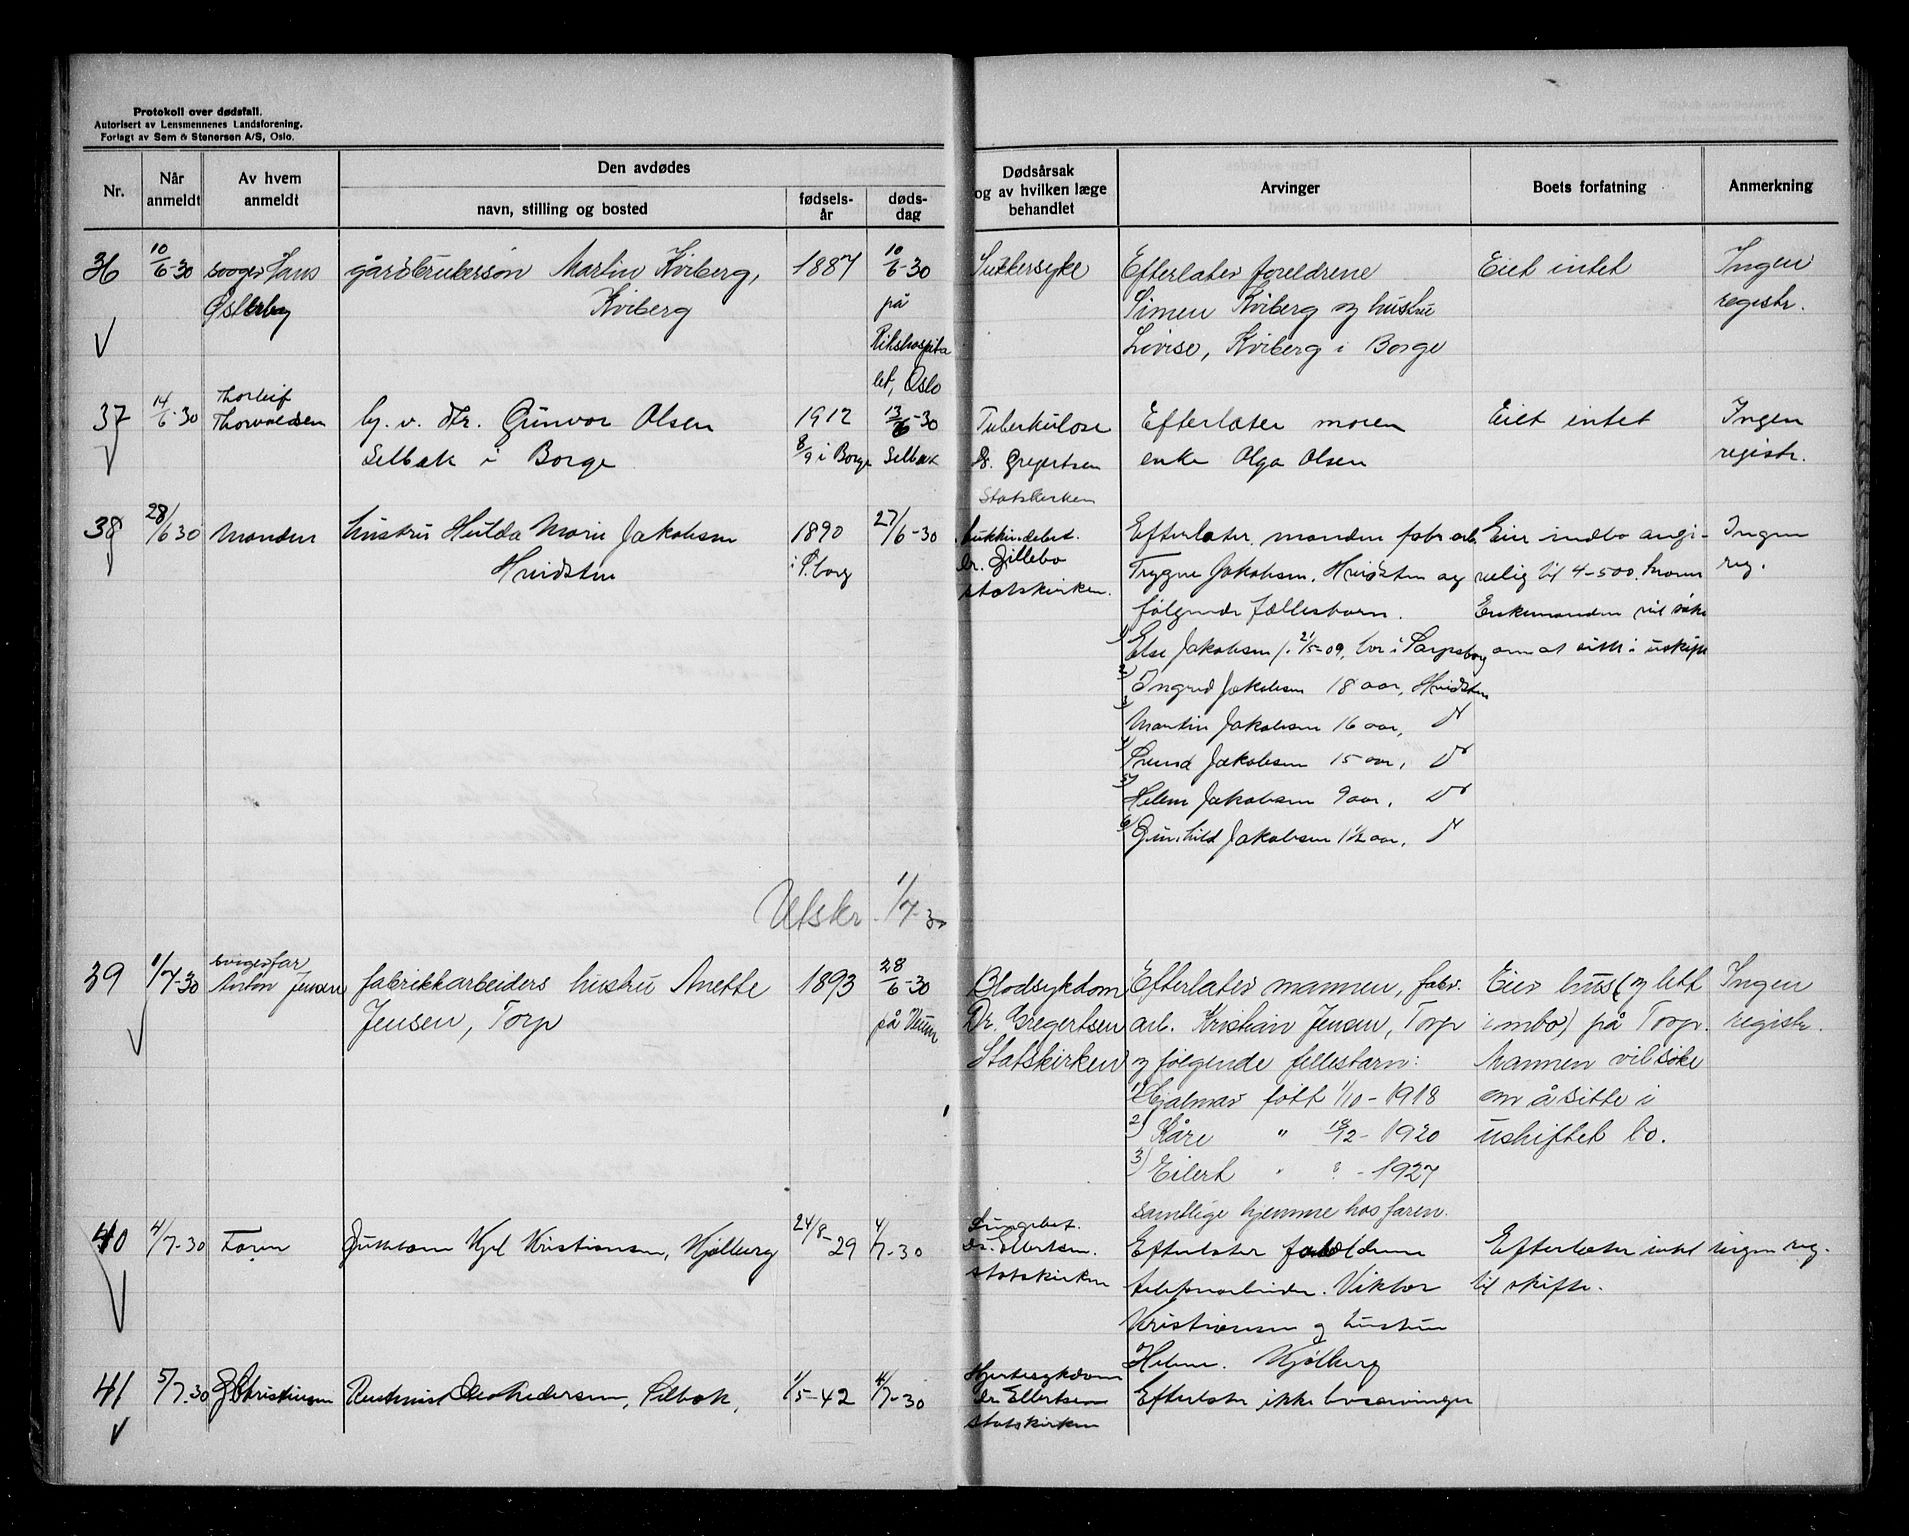 Protokoll over dødsfall.
Autorisert av Lensmennenes Landsforening.
Forlagt av Sem & Stenersen A/S, Oslo.
Nr.
Når anmeldt
Av hvem anmeldt
Den avdødes
navn, stilling og bosted
fødsels-år
døds-dag
Dødsårsak og av hvilken læge behandlet
Arvinger
Boets forfatning
Anmerkning
36 10/6-30 Hans gårdbrukersøn Martin Kviberg, 1887 10/6-30 Sukkersyke Efterlater foreldrene Eiet intet Ingen
Østerby Kviberg på Simen Kviberg og hustru registr.
Rikshospita Lovise, Kviberg i Borge
let, Oslo
Thorleif
37 14/6-30 Thorvaldsen Gunvor Olsen 1912 13/6-30 Tuberkulose Efterlater moren Eiet intet Ingen
Selbak i Borge 8/9 i Borge Selbak Dr. Gregertsen enke Olga Olsen registr.
Statskirken
38 28/6 30 Manden hustru Hulda Marie Jakobsen 1890 27/6-30 Efterlater manden fabr. arb. Eier indbo angi-Ingen
Hvidsten i S.borg Dr. Jillebo Trygve Jakobsen, Hvidsten og velig til 4-500 kroner reg.
statskirken. følgende fællesbarn. Enkemanden vil søke
1) Else Jakobsen f. 21/5-09, bor i Sarpsborg om at sitte i uskifte
2) Ingrid Jakobsen 18 aar, Hvidsten
Martin Jakobsen 16 aar, do
Jakobsen 15 aar, do
5) Helene Jakobsen 9 aar, do
6) Gunhild Jakobsen 1½ aar, do
Utskr. 1/7-30
svigerfar
39 1/7-30 Anton Jensen fabrikkarbeiders hustru Anette 1893 28/6-30 Blodsykdom Efterlater mannen, fabr. Eier hus (og litt Ingen
Jensen, Torp på Veum Dr. Gregertsen arb. Kristian Jensen, Torp innbo) på Torp. registr.
Statskirken og følgende fellesbarn: Mannen vil søke
1) Hjalmar født 1/10-1918 om å sitte i
2) Kåre " 1920 uskiftet bo.
3) Eilert " ? - 1927
samtlige hjemme hos faren.
40 4/7-30 Faren Kristiansen, Kjølberg 24/8-29 4/7-30 Lungebet. Efterlater forældrene Efterlater intet Ingen reg.
Dr. Ellertsen. telefonarbeider Viktor til skifte.
statskirken Kristiansen og hustru
Helene. Kjølberg
41 5/7-30 Christiansen Pedersen, Selbak, 1/5-42 4/7-30 Hjertesykdom Efterlater ikke livsarvinger
Dr. Ellertsen
statskirken